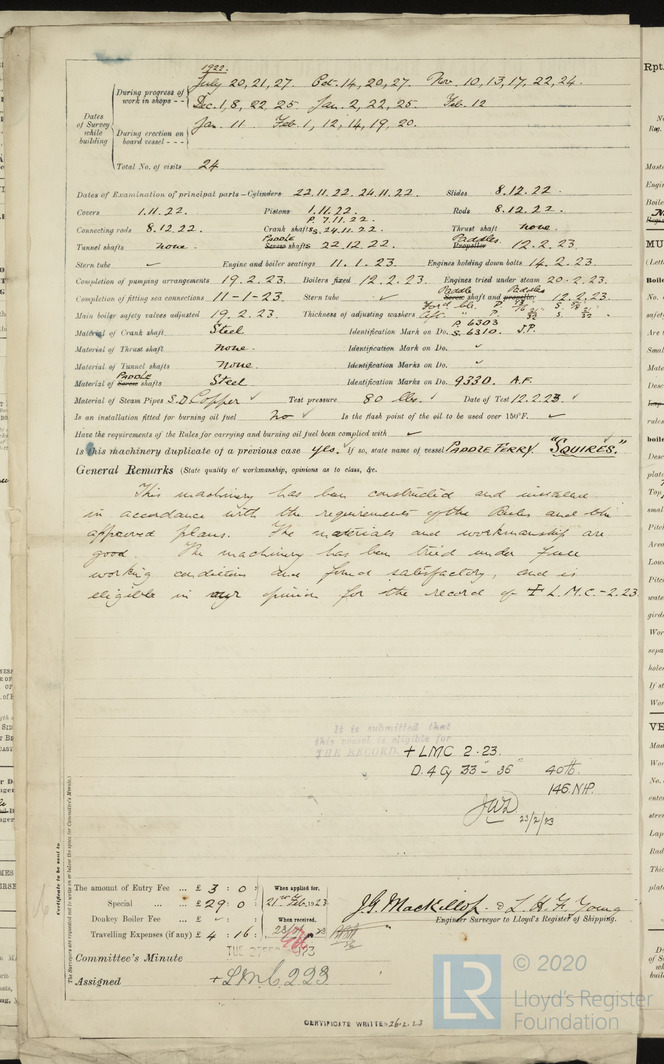 1922.
During progress of work in shops - - July 20, 21, 27. Oct. 14, 20, 27. Nov. 10, 13, 17, 22, 24.
Dec. 1, 8, 22 25 Jan. 2, 22, 25 Feb. 12
Dates of Survey while building
During erection on board vessel - - - Jan. 11 Feb. 1, 12, 14, 19, 20.
Total No. of visits 24
Dates of Examination of principal parts—Cylinders 22.11.22. 24.11.22. Slides 8.12.22.
Covers 1.11.22. Pistons 1.11.22. Rods 8.12.22.
Connecting rods 8.12.22. Crank shafts P. 7.11.22. S. 24.11.22. Thrust shaft none.
Tunnel shafts none. Paddle Screw shafts 22.12.22. Paddles. Propeller 12.2.23.
Stern tube ✓ Engine and boiler seatings 11.1.23. Engines holding down bolts 14.2.23.
Completion of pumping arrangements 19.2.23. Boilers fixed 12.2.23. Engines tried under steam 20.2.23.
Completion of fitting sea connections 11-1-23. Stern tube ✓ Paddle Screw shaft and Paddles propeller 12.2.23.
Main boiler safety valves adjusted 19.2.23. Thickness of adjusting washers
Material of Crank shaft Steel Identification Mark on Do. P. 6303 S. 6310. J.P.
Material of Thrust shaft none. Identification Mark on Do. ✓
Material of Tunnel shafts None. Identification Marks on Do. ✓
Material of Paddle Screw shafts Steel Identification Marks on Do. 9330. A.F.
Material of Steam Pipes S.D Copper ✓ Test pressure 80 lbs. ✓ Date of Test 12.2.23. ✓
Is an installation fitted for burning oil fuel No ✓ Is the flash point of the oil to be used over 150°F. ✓
Have the requirements of the Rules for carrying and burning oil fuel been complied with ✓
Is this machinery duplicate of a previous case yes. ✓ If so, state name of vessel PADDLE FERRY "SQUIRES."
General Remarks (State quality of workmanship, opinions as to class, &c.
This machinery has been constructed and installed
in accordance with the requirements of the Rules and the
approved plans. The materials and workmanship are
good. The machinery has been tried under full
working conditions and found satisfactory, and is
eligible in our opinion for the record of + L.M.C.-2.23
It is submitted that
this vessel is eligible for
THE RECORD. + LMC 2.23.
D. 4 Cy 33" - 36" 40 lb.
146 N.H.P.
23/2/23
Certificate to be sent to
The Surveyors are requested not to write on or below the space for Committee's Minute.
The amount of Entry Fee ... £ 3 : 0 : When applied for,
Special ... £ 29 : 0 : 21st Feb. 1923
Donkey Boiler Fee ... £ - : : When received,
Travelling Expenses (if any) £ 4 : 16 :
J.G. Mackillop. & L.H.F. Young
Engineer Surveyor to Lloyd's Register of Shipping.
Committee's Minute TUE. 27 FEB. 1923
Assigned + LMC 2.23
CERTIFICATE WRITTEN 26.2.23
LR © 2020
Lloyd's Register
Foundation